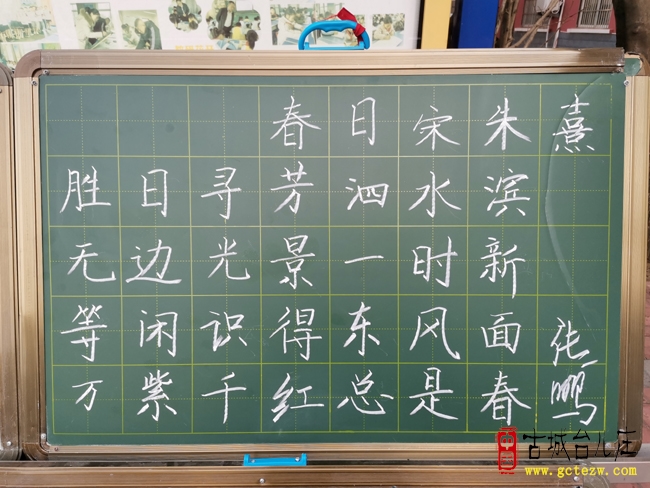 春日宋朱熹
胜日寻芳泗水滨
无边光景一时新
等闲识得东风面
万紫千红总是春
张鹏
古城台儿庄
www.gctezw.com